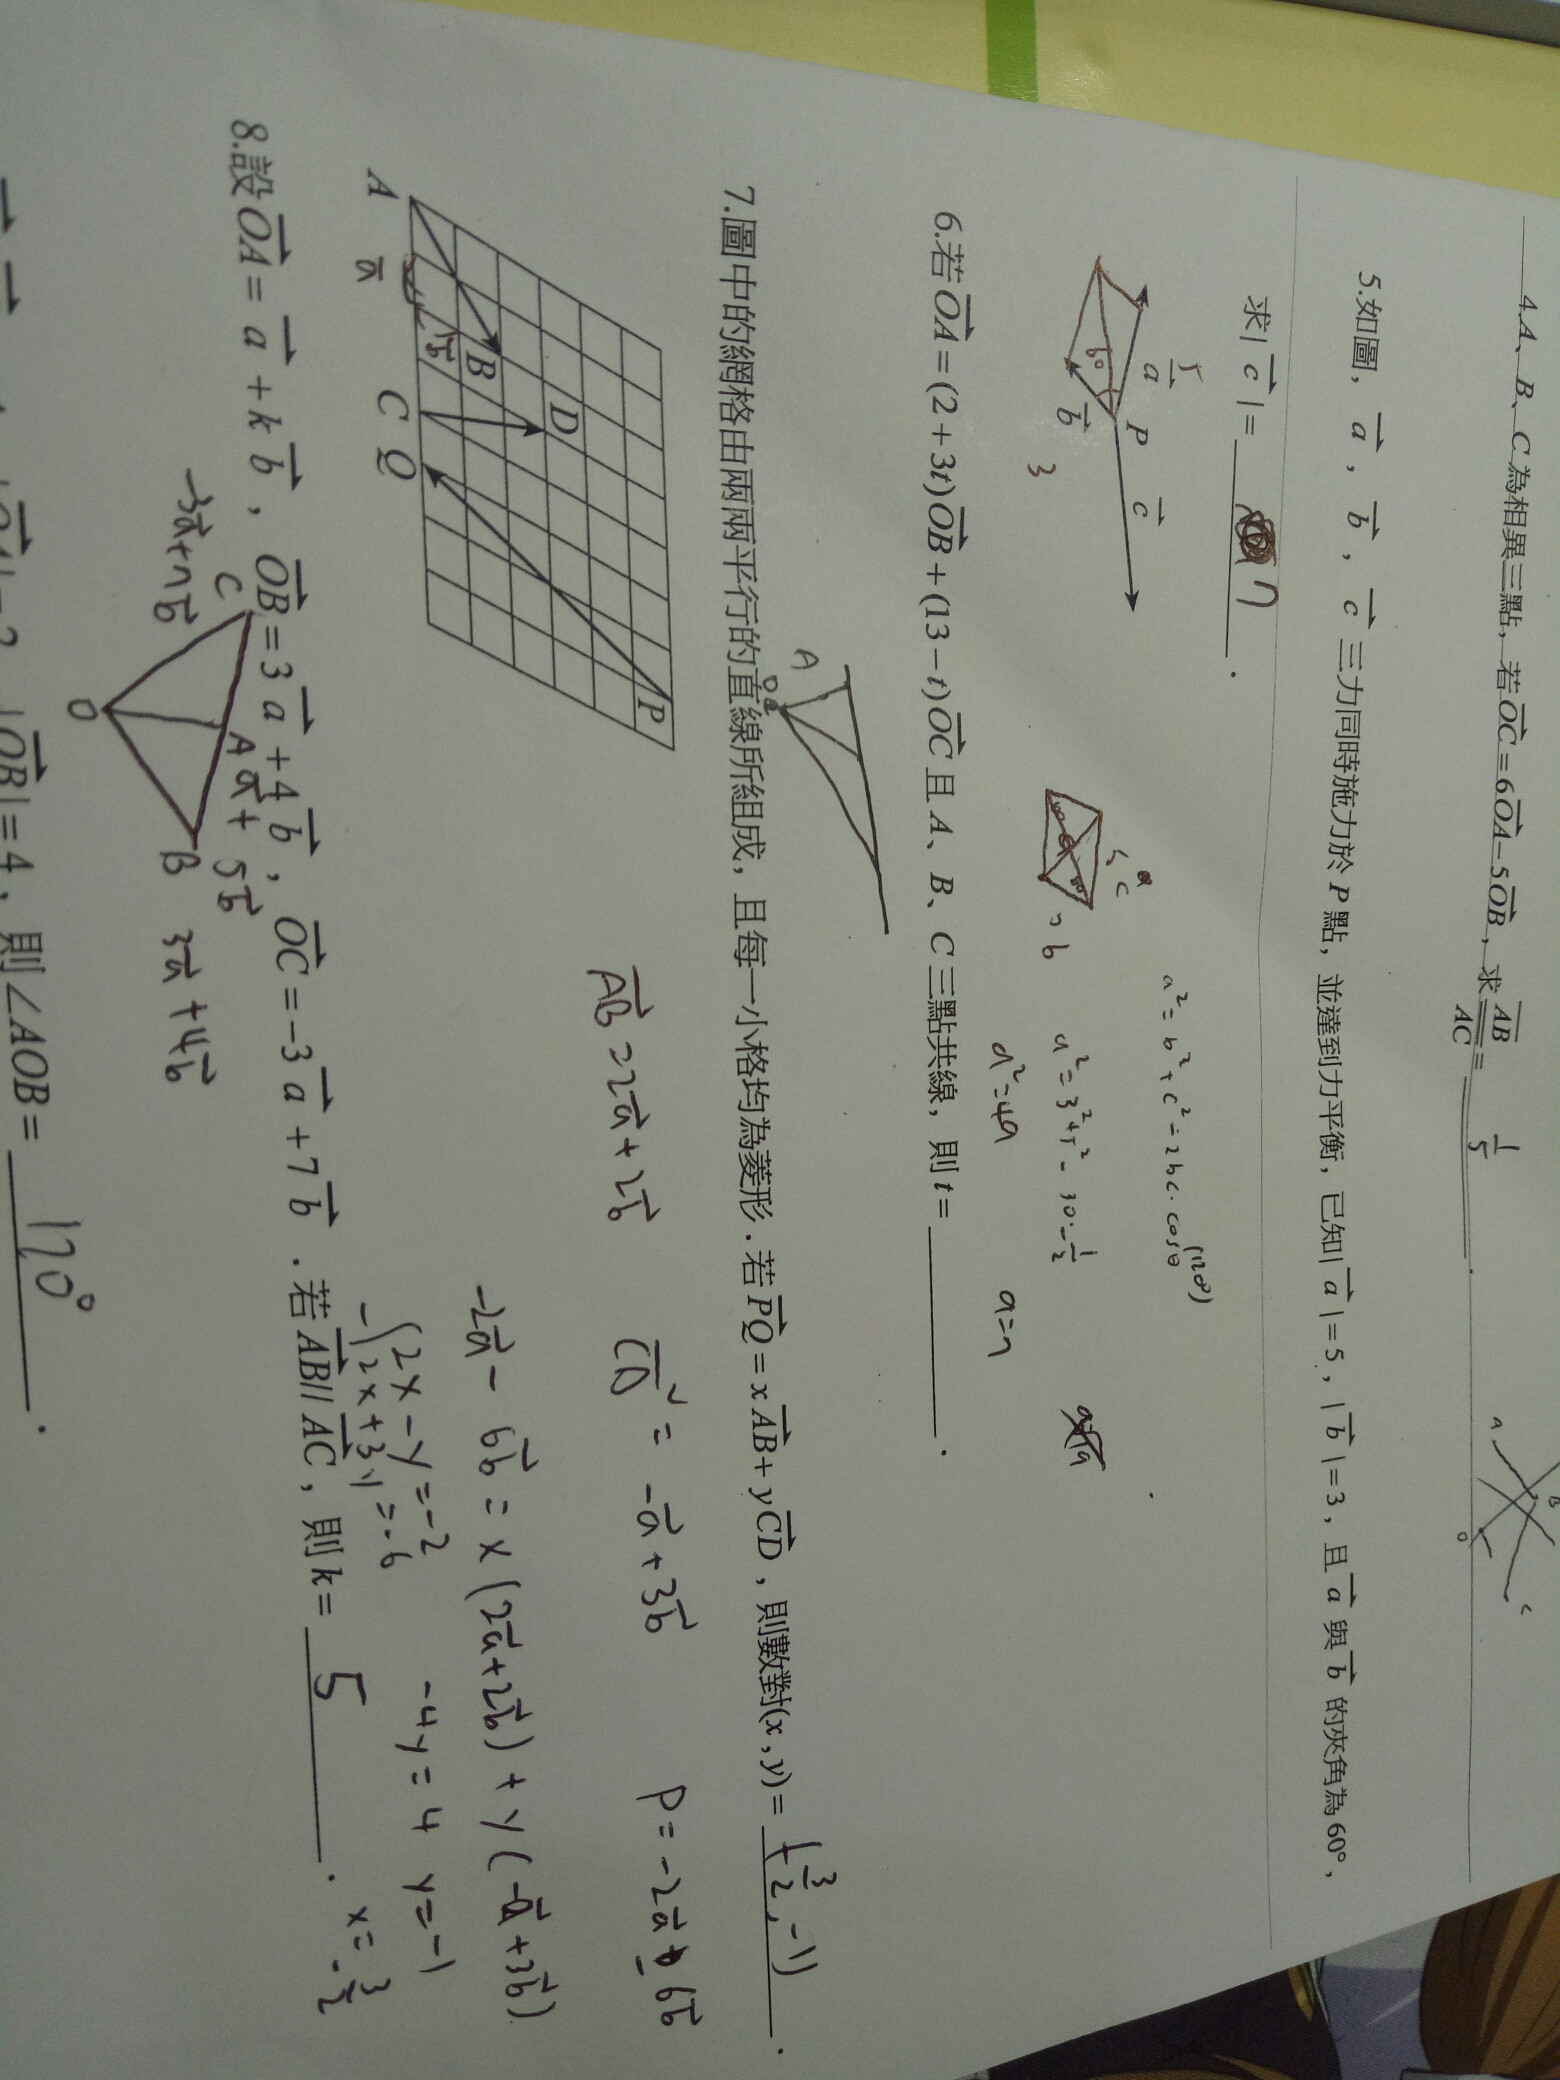 4.A、B、C為相異三點，若OC=6OA-5OB，求AB/AC= 1/5 .
A B C O
5.如圖，a，b，c三力同時施力於P點，並達到力平衡，已知|a|=5，|b|=3，且a與b的夾角為60°，
求|c|= 7 .
a P c
60
b 3
a² = b² + c² - 2bc·cosθ (120°)
a² = 3² + 5² - 30·-1/2
a² = 49 a=7
6.若OA=(2+3t)OB+(13-t)OC且A、B、C三點共線，則t= .
A
7.圖中的網格由兩兩平行的直線所組成，且每一小格均為菱形．若PQ=xAB+yCD，則數對(x,y)= (-3/2, -1) .
A B C D Q P
a b
AB = 2a+2b CD = -a+3b P=-2a-6b
-2a-6b = x(2a+2b)+y(-a+3b)
2x-y=-2
2x+3y=-6
-4y=4 y=-1 x=-3/2
8.設OA=a+kb，OB=3a+4b，OC=-3a+7b．若AB//AC，則k= 5 .
C A a+5b
-3a+7b O B 3a+4b
|OB|=4，則∠AOB= 120° .